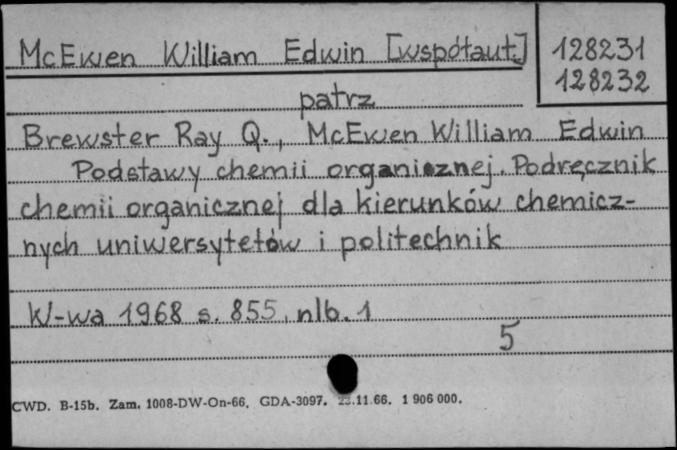 McEwen William Edwin [współaut.]
128231
128232
patrz
Brewster Ray Q., McEwen William Edwin
Podstawy chemii organicznej. Podręcznik
chemii organicznej dla kierunków chemicz-
nych uniwersytetów i politechnik
W-wa 1968 s. 855, nlb. 1
5
CWD. B-15b. Zam. 1008-DW-On-66. GDA-3097. 23.11.66. 1 906 000.